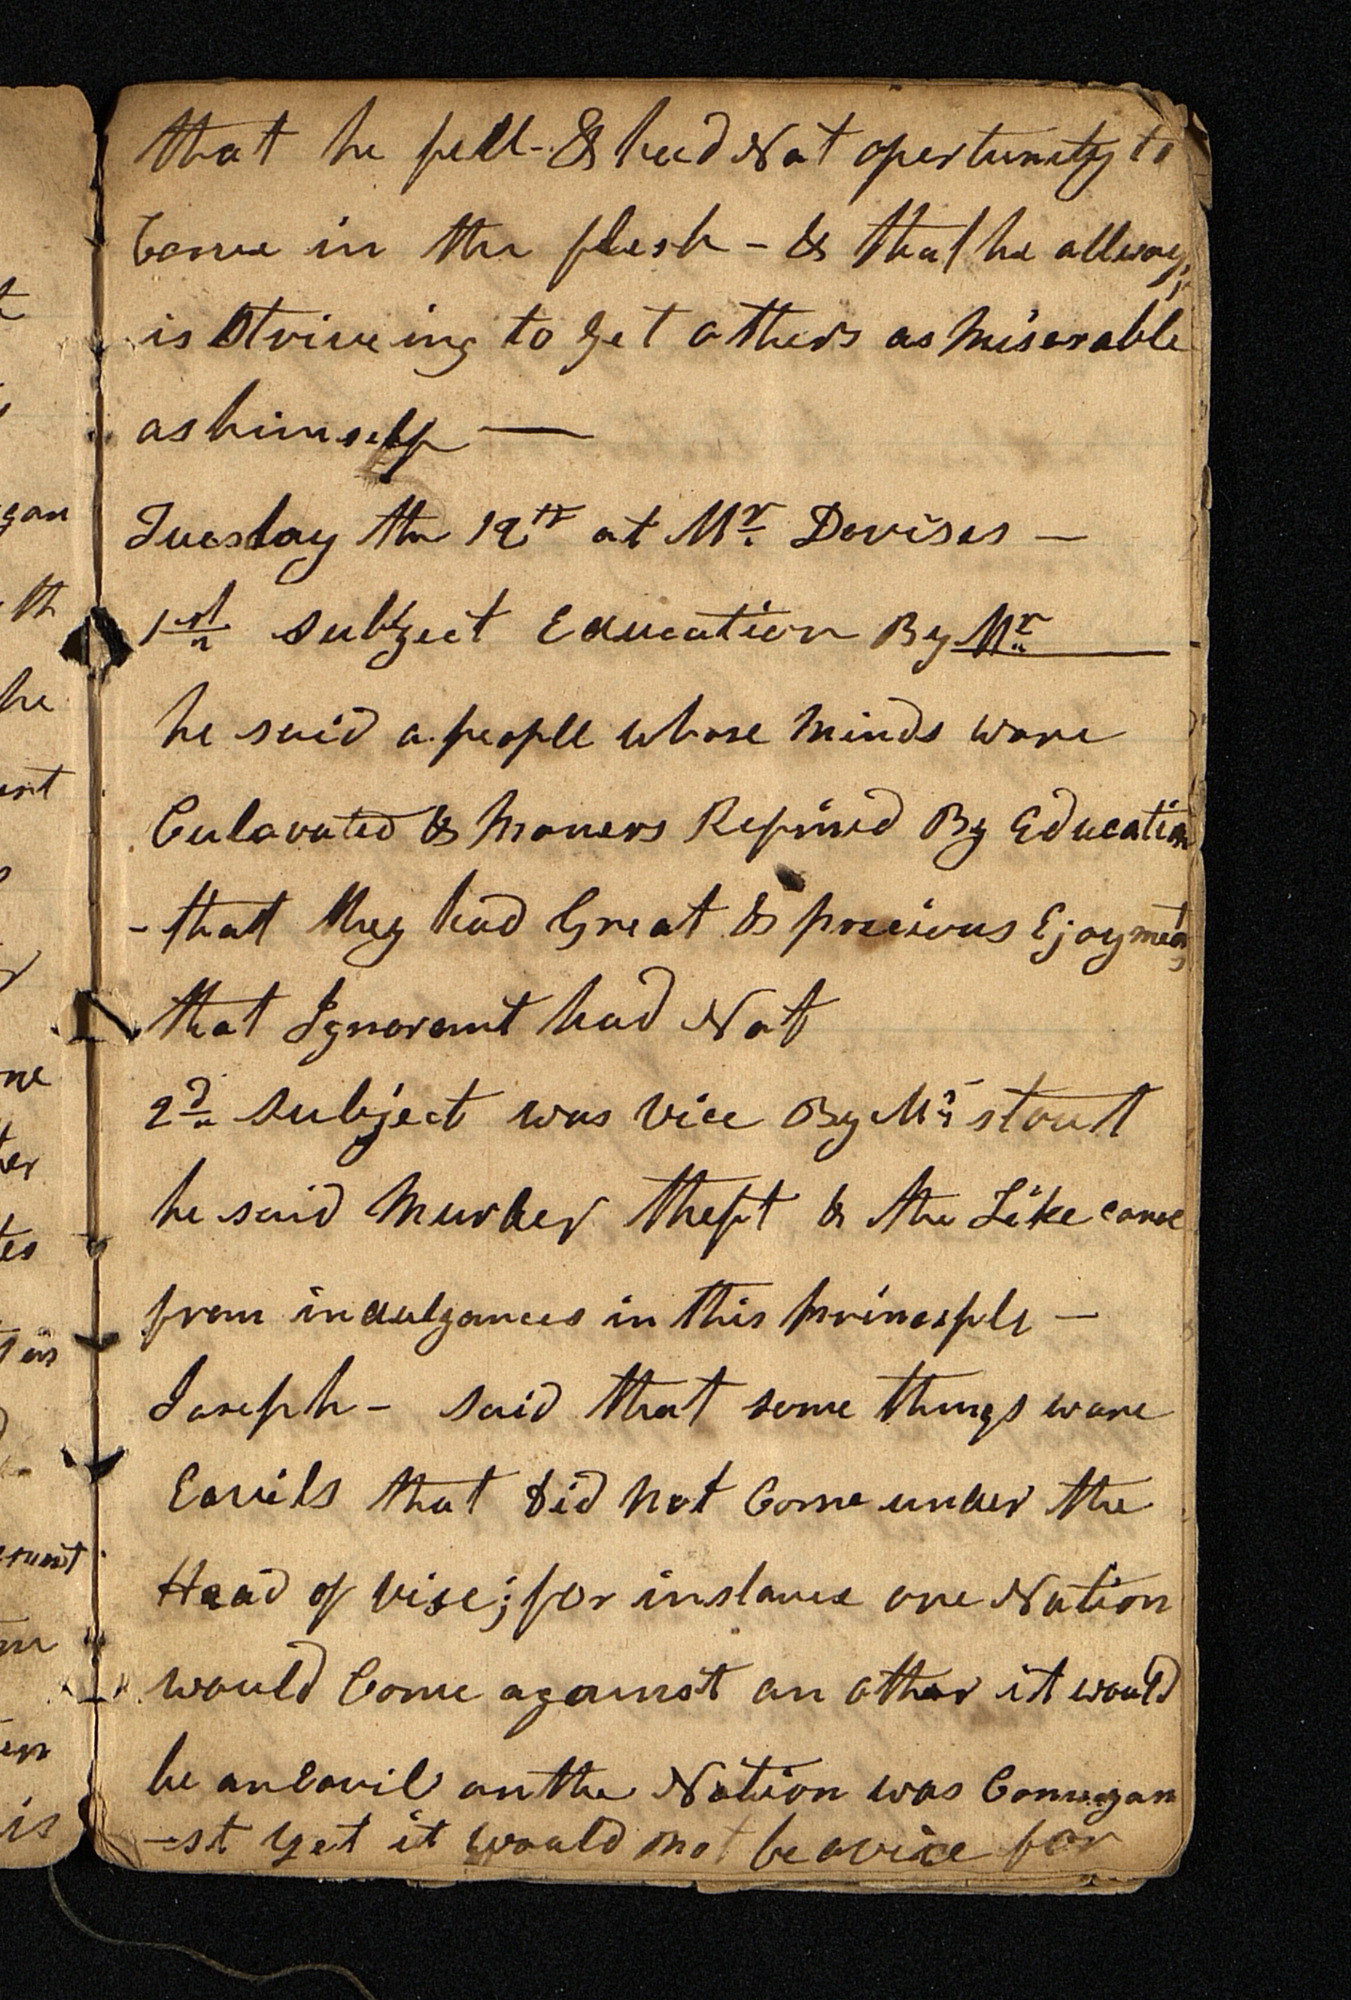 that he fell - & had Not opertunity to
Come in the flesh - & that he allways
is Striveing to get others as Miserable
as himself —
Tuesday the 12th at Mr. Davises —
1st Subject Education By Mr ___
he said a people whose Minds ware
Culavated & Maners Refined By Education
- that they had Great & precious Ejoyments
that Ignorant had Not
2d Subject was Vice By Mr stout
he said Murder theft & the Like came
from indulgances in this principle —
Joseph - said that some things ware
Eavils that did Not Come under the
Head of Vise; for instance one Nation
would Come against an other it would
be an Eavil on the Nation was Comeagan
-st yet it would not be a vice for